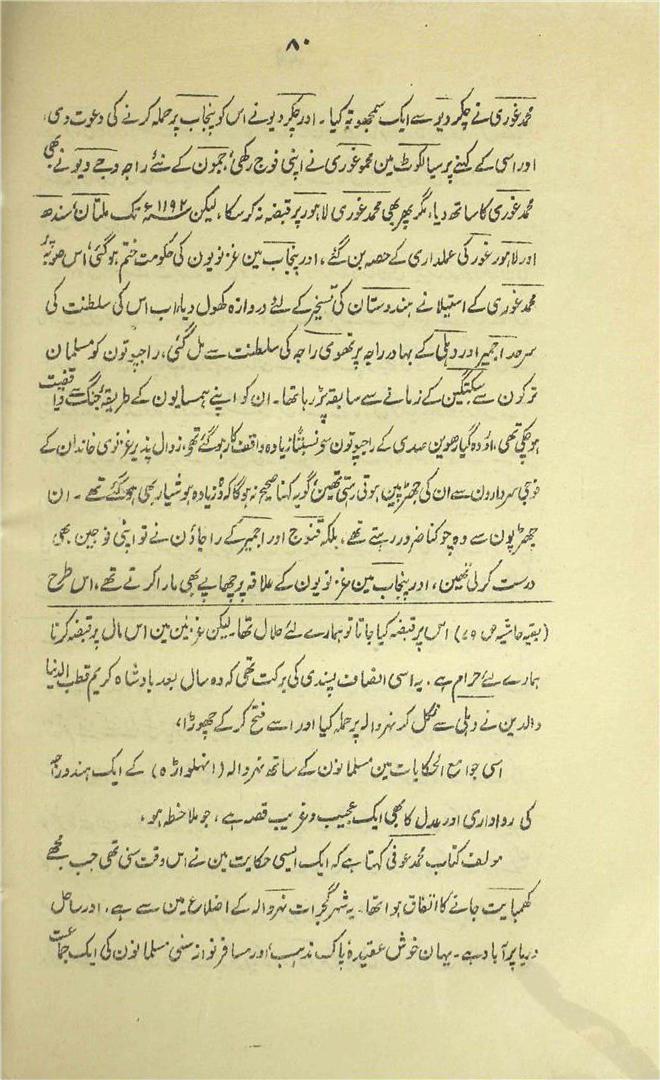 ۸۰
محمد غوری نے چکر دیو سے ایک سمجھوتہ کیا۔ اور چکر دیو نے اس کو پنجاب پر حملہ کرنے کی دعوت دی،
اور اسی کے کہنے پر سیالکوٹ مین محمد غوری نے اپنی فوج رکھی، جمون کے نئے راجہ وجے دیو نے بھی
محمد غوری کا ساتھ دیا، مگر پھر بھی محمد غوری لاہور پر قبضہ نہ کر سکا، لیکن ۱۱۹۲ء تک ملتان، سندھ
اور لاہور غور کی عملداری کے حصہ بن گئے، اور پنجاب مین غزنویون کی حکومت ختم ہو گئی، اس صوبہ پر
محمد غوری کے استیلا نے ہندوستان کی تسخیر کے لئے دروازہ کھول دیا، اب اس کی سلطنت کی
سرحد اجمیر اور دہلی کے بہادر راجہ پرتھوی راجہ کی سلطنت سے مل گئی، راجپوتون کو مسلمان
ترکون سے سبکتگین کے زمانے سے سابقہ پڑ رہا تھا۔ ان کو اپنے ہمسایون کے طریقۂ جنگ سے واقفیت
ہو چکی تھی، اور وہ گیارھوین صدی کے راجپوتون سے نسبتاً زیادہ واقف کار ہو گئے تھے، زوال پذیر غزنوی خاندان کے
فوجی سردارون سے ان کی جھڑپین ہوتی رہتی تھین، گو یہ کہنا صحیح نہ ہوگا کہ وہ زیادہ ہوشیار بھی ہو گئے تھے۔ ان
جھڑپون سے وہ چوکنا ضرور رہتے تھے، بلکہ قنوج اور اجمیر کے راجاؤن نے تو اپنی فوجین بھی
درست کر لی تھین، اور پنجاب مین غزنویون کے علاقہ پر چھاپے بھی مارا کرتے تھے، اس طرح
(بقیہ حاشیہ ص ۷۹) اس پر قبضہ کیا جاتا تو ہمارے لئے حلال تھا۔ لیکن غزنین مین اس مال پر قبضہ کرنا
ہمارے لئے حرام ہے۔ یہ اسی انصاف پسندی کی برکت تھی کہ دو سال بعد بادشاہ کریم قطب الدنیا
والدین نے دہلی سے نکل کر نہروالہ پر حملہ کیا اور اسے فتح کر کے چھوڑا،
اسی جوامع الحکایات مین مسلمانون کے ساتھ نہروالہ (انہلواڑہ) کے ایک ہندو راجہ
کی رواداری اور عدل کا بھی ایک عجیب و غریب قصہ ہے، جو ملاحظہ ہو،
مولف کتاب محمد عوفی کہتا ہے کہ ایک ایسی حکایت مین نے اس وقت سنی تھی جب مجھے
کھمبایت جانے کا اتفاق ہوا تھا۔ یہ شہر گجرات نہروالہ کے اضلاع مین سے ہے، اور ساحل
دریا پر آباد ہے۔ یہان خوش عقیدہ پاک مذہب اور مسافر نواز سنی مسلمانون کی ایک جماعت